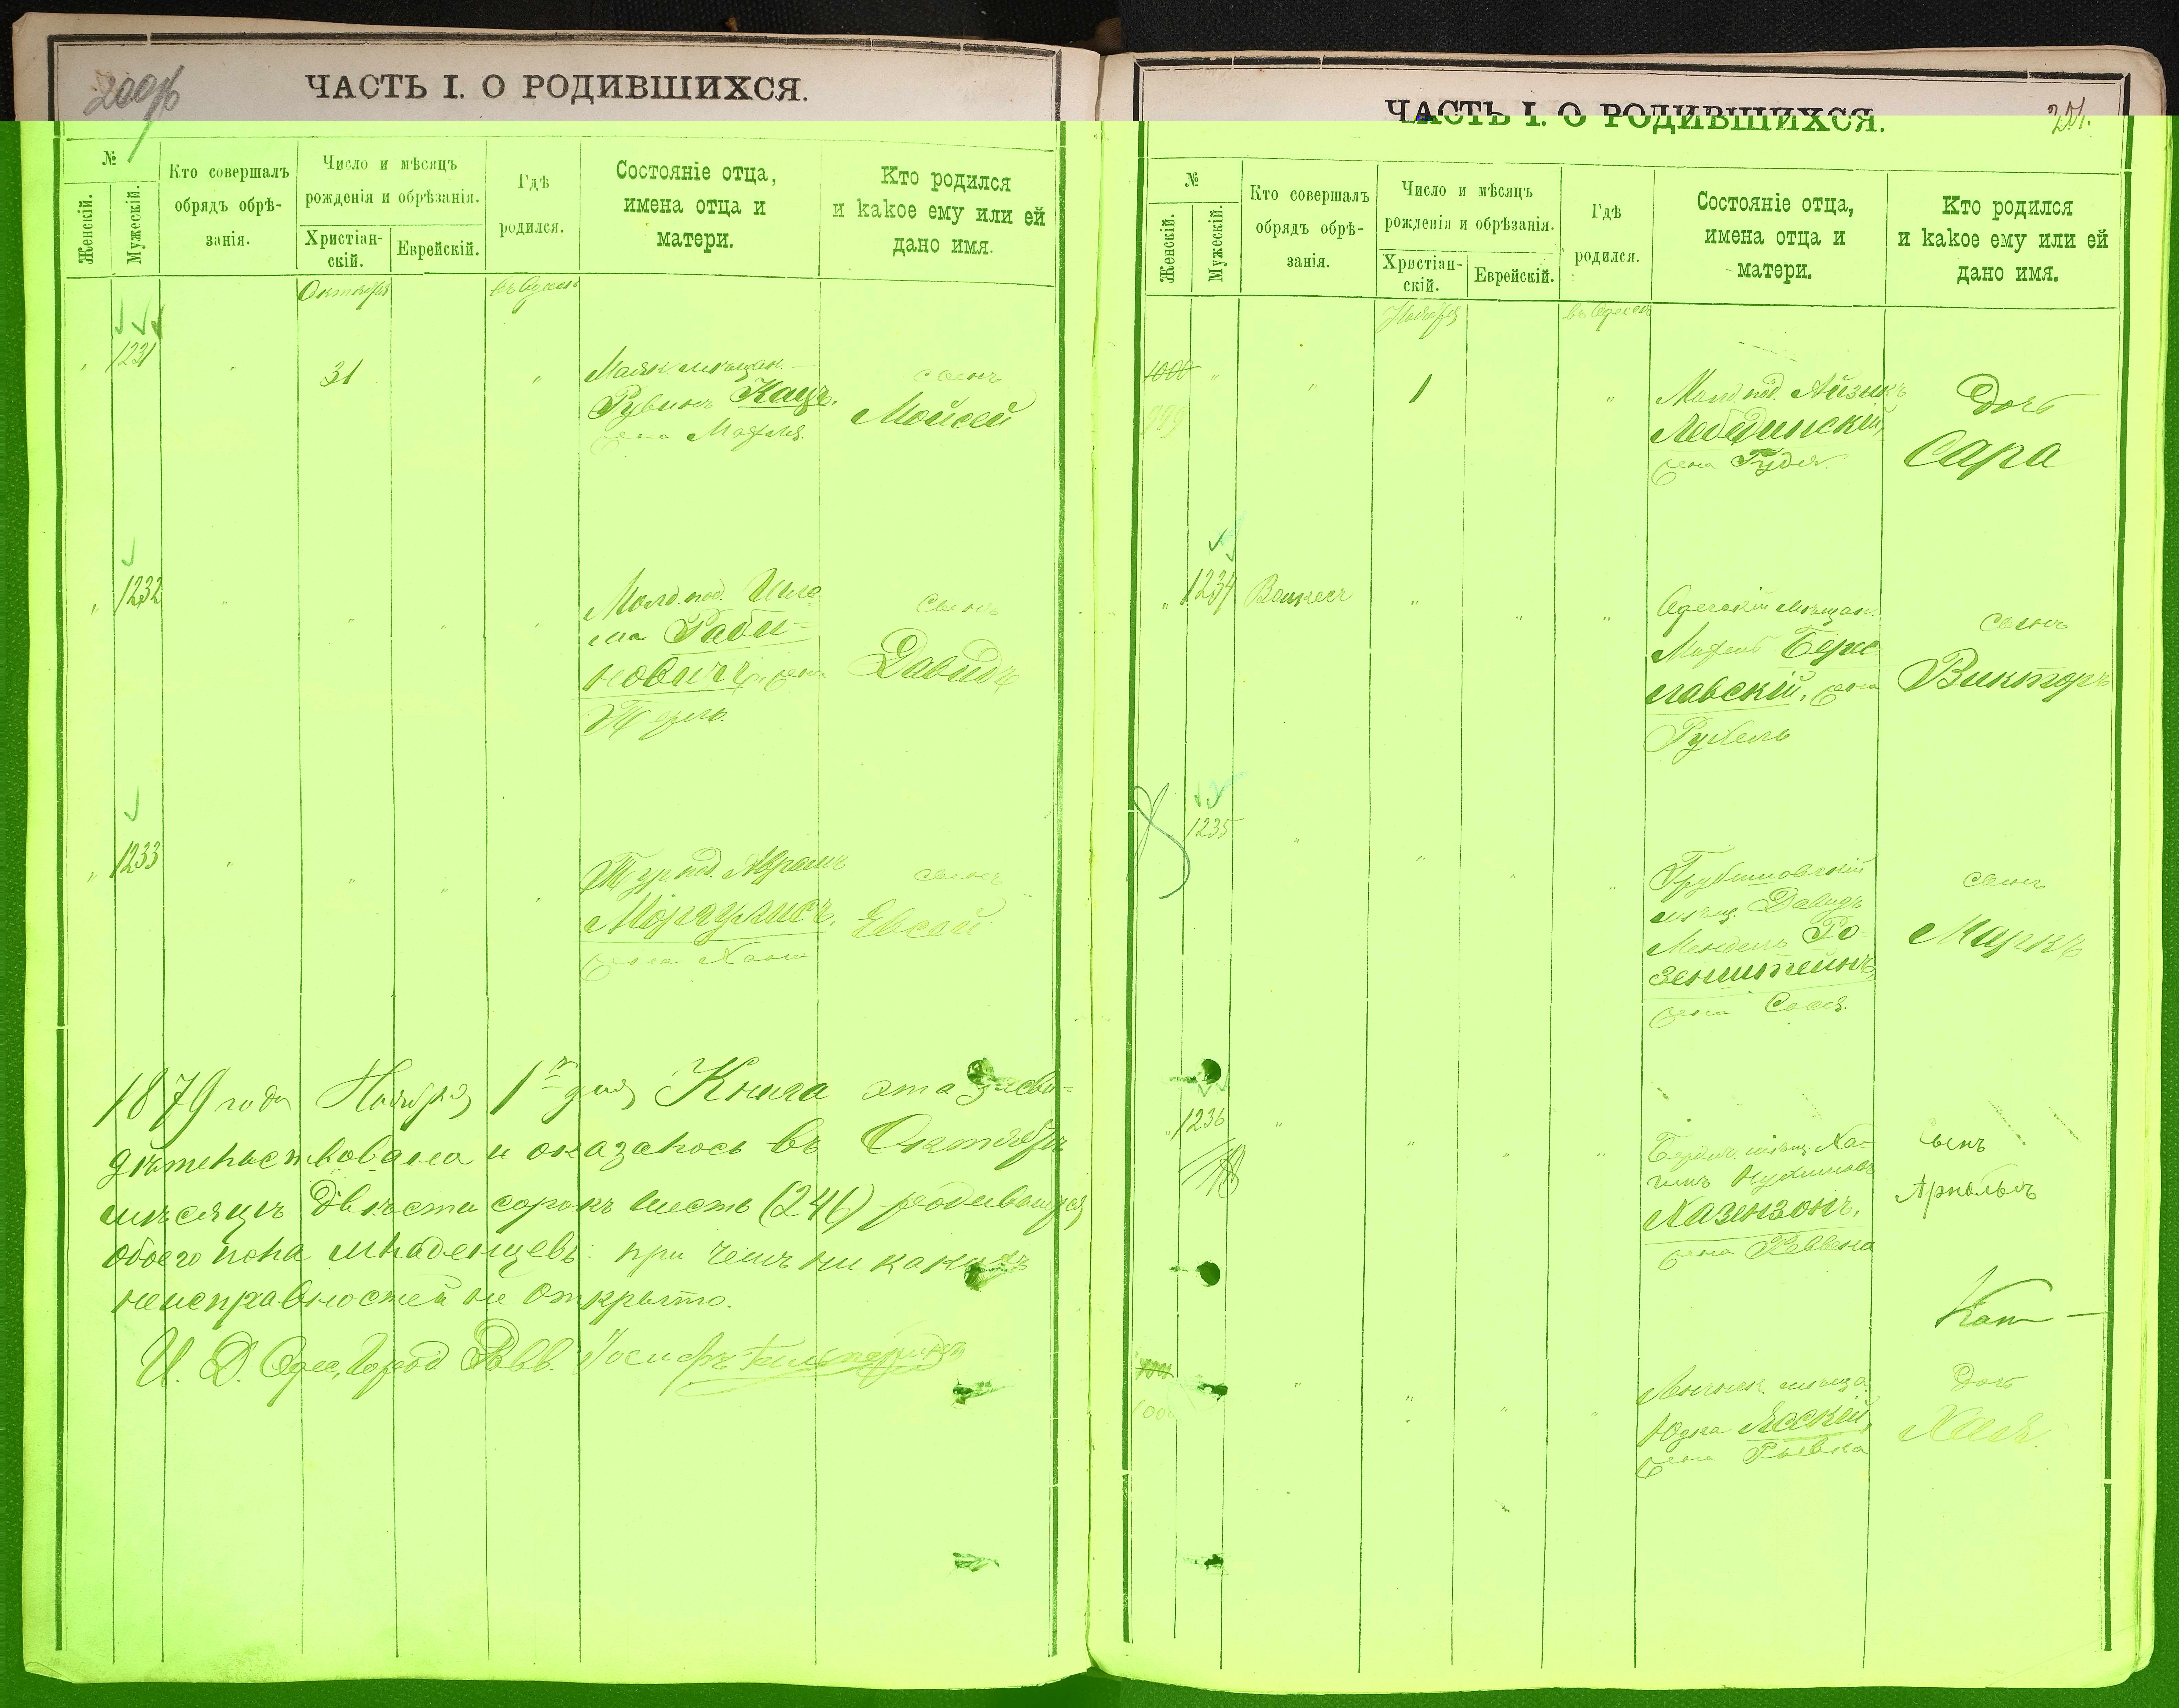 200об
ЧАСТЬ I. О РОДИВШИХСЯ.
№
Женскій.
Мужескій.
Кто совершалъ
обрядъ обрѣ-
занія.
Число и мѣсяцъ
рожденія и обрѣзанія.
Христіан-
скій.
Еврейскій.
Гдѣ
родился.
Состояніе отца,
имена отца и
матери.
Кто родился
и какое ему или ей
дано имя.
Октября
въ Одессѣ
1231
31
Маяк. мѣщан.
Рувинъ Кацъ,
жена
сынъ
Мойсей
1232
Молд. под. Шлё-
ма Раби-
новичъ, жена
сынъ
Давидъ
1233
Тур. под. Абрамъ
Моргулисъ,
жена Хана
сынъ
Евсей
1879 года Ноября 1го дня Книга эта засви-
дѣтельствована и оказалось въ Октябрѣ
мѣсяцѣ двѣсти сорокъ шесть (246) родившихся
обоего пола младенцевъ: при чемъ никакихъ
неисправностей не открыто.
И. Д. Одес. Город. Равв. Іосифъ
ЧАСТЬ I. О РОДИВШИХСЯ.
201.
№
Женскій.
Мужескій.
Кто совершалъ
обрядъ обрѣ-
занія.
Число и мѣсяцъ
рожденія и обрѣзанія.
Христіан-
скій.
Еврейскій.
Гдѣ
родился.
Состояніе отца,
имена отца и
матери.
Кто родился
и какое ему или ей
дано имя.
Ноября
въ Одессѣ
1000
999
1
Молд. под. Айзикъ
Лебединскій,
жена Гудя.
Дочь
Сара
1234
Одесскій мѣщан.
Берис-
лавскій, жена
Рухель
сынъ
Викторъ
1235
Грубешовскій
мѣщ. Давидъ
Мендель Ро-
зенштейнъ,
жена Сося.
сынъ
Маркъ
1236
Бердич. мѣщ. Ха-
имъ Нухимовъ
Хазензонъ,
жена Ревека
сынъ
Арнольдъ
Кац
1001
1000
мѣща.
Юдка Ясскій,
жена Рывка
Дочь
Хая